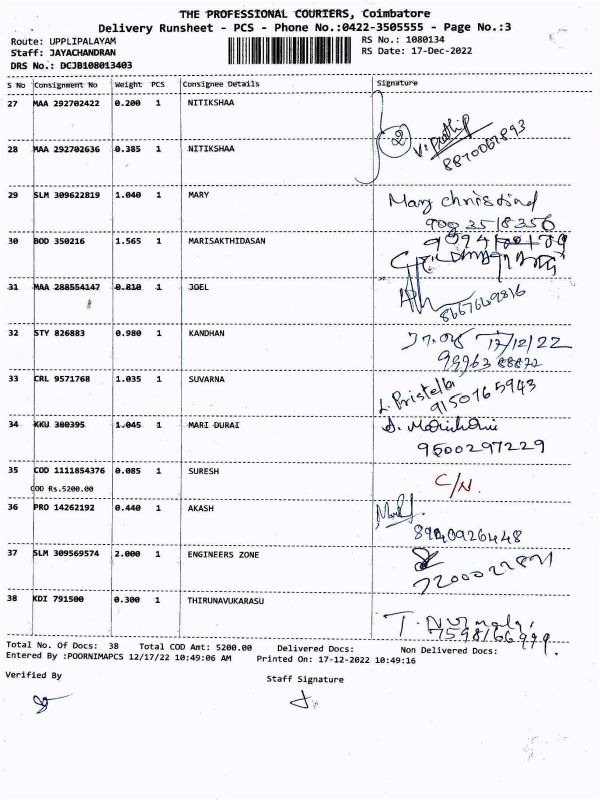 THE PROFESSIONAL COURIERS, Coimbatore
Delivery Runsheet - PCS - Phone No.:0422-3505555 - Page No.:3
Route: UPPLIPALAYAM
RS No.: 1080134
Staff: JAYACHANDRAN
RS Date: 17-Dec-2022
DRS No.: DCJB108013403
S No Consignment No Weight PCS Consignee Details Signature
27 MAA 292702422 0.200 1 NITIKSHAA
2 V. Prathip
8870067893
28 MAA 292702636 0.385 1 NITIKSHAA
29 SLM 309622819 1.040 1 MARY Mary Christina
30 BOD 350216 1.565 1 MARISAKTHIDASAN
31 MAA 288554147 0.810 1 JOEL
8667669816
32 STY 826883 0.980 1 KANDHAN 17/12/22
33 CRL 9571768 1.035 1 SUVARNA L. Pristella
9150765943
34 KKU 380395 1.045 1 MARI DURAI
9500297229
35 COD 1111854376 0.085 1 SURESH C/N.
COD Rs.5200.00
36 PRO 14262192 0.440 1 AKASH
8940926448
37 SLM 309569574 2.000 1 ENGINEERS ZONE
38 KDI 791500 0.300 1 THIRUNAVUKARASU
Total No. Of Docs: 38 Total COD Amt: 5200.00 Delivered Docs: Non Delivered Docs:
Entered By :POORNIMAPCS 12/17/22 10:49:06 AM Printed On: 17-12-2022 10:49:16
Verified By Staff Signature